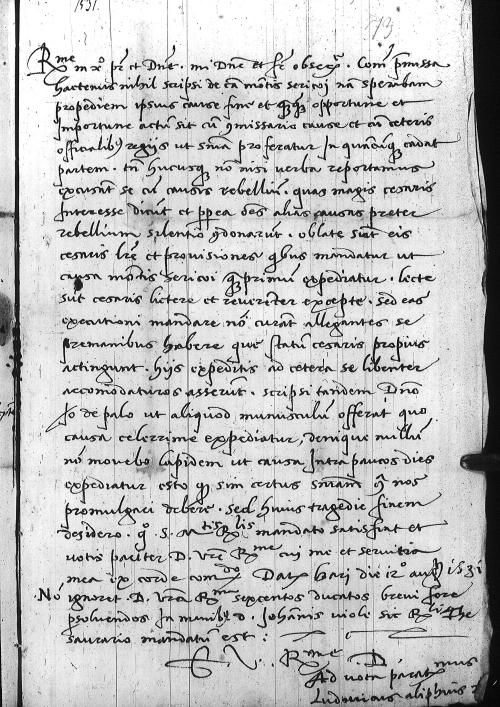 1531.
13
R.me in xpo pr et Dne. mi Dne et pr obser.me Com p'missa
hactenus nihil scripsi de ca montis sericoi nam sperabam
propediem ipsius cause fine et quanquam opportune et
importune actum sit cum commissario cause et cum ceteris
officialibus regiis ut snia proferatur in quancunque cadat
partem. tn hucusque non nisi verba reportamus
excusant se cum causis rebellium. quas magis cesaris
interesse dicunt et propterea oes alias causas preter
rebellium silentio condonarunt. oblate sunt eis
cesaris lre et provisiones quibus mandatur ut
causa montis sericoi quam primum expediatur. lecte
sut cesaris lictere et reverenter excepte. sed eas
executioni mandare non curant allegantes se
premanibus habere que statum cesaris propius
actingunt. hijs expeditis ad cetera se libenter
accomodaturos asserunt. scripsi tandem Dno
Jo de palo ut aliquod munusculum offerat quo
causa celerrime expediatur, denique nullum
non movebo lapidem ut causa intra paucos dies
expediatur esto quod sim certus sniam contra nos
promulgari debere. sed huius tragedie finem
desidero. quo S. Mtis Rlis mandato satisfiat et
votis pariter D. vre Rme cui me et servitia
mea ex corde comdo Dat Bari die 12o aug 1531
.No ignoret D. vra Rma sexcentos ducatos brevi fore
psolvendos in manibus d. Johannis viole sic Rli The
saurario mandatum est :
E. V. Rme. D.
Ad vota paratmus
Ludovicus aliphius